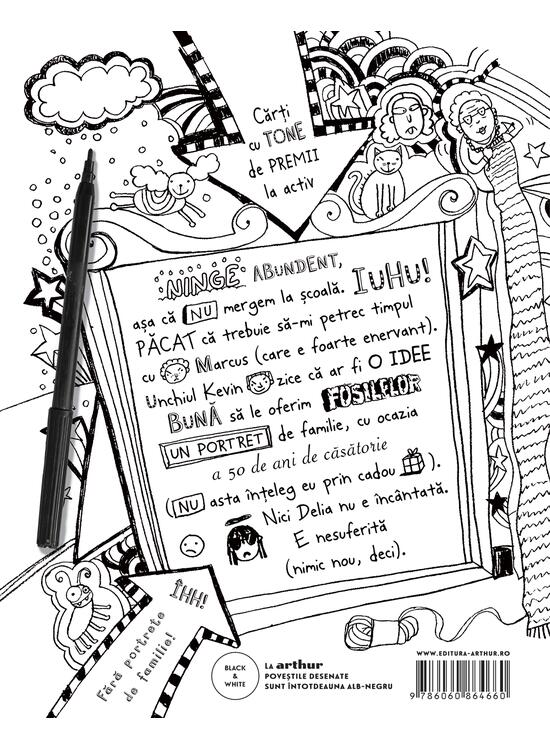 Cărți
cu TONE
de PREMII
la activ
NINGE ABUNDENT,
așa că NU mergem la școală. IUHU!
PĂCAT că trebuie să-mi petrec timpul
cu Marcus (care e foarte enervant).
Unchiul Kevin zice că ar fi O IDEE
BUNĂ să le oferim FOSILELOR
UN PORTRET de familie, cu ocazia
a 50 de ani de căsătorie
(NU asta înțeleg eu prin cadou).
Nici Delia nu e încântată.
E nesuferită
(nimic nou, deci).
ÎHH!
Fără portrete
de familie!
BLACK
&
WHITE
LA arthur
POVEȘTILE DESENATE
SUNT ÎNTOTDEAUNA ALB-NEGRU
WWW.EDITURA-ARTHUR.RO
9 786060 864660